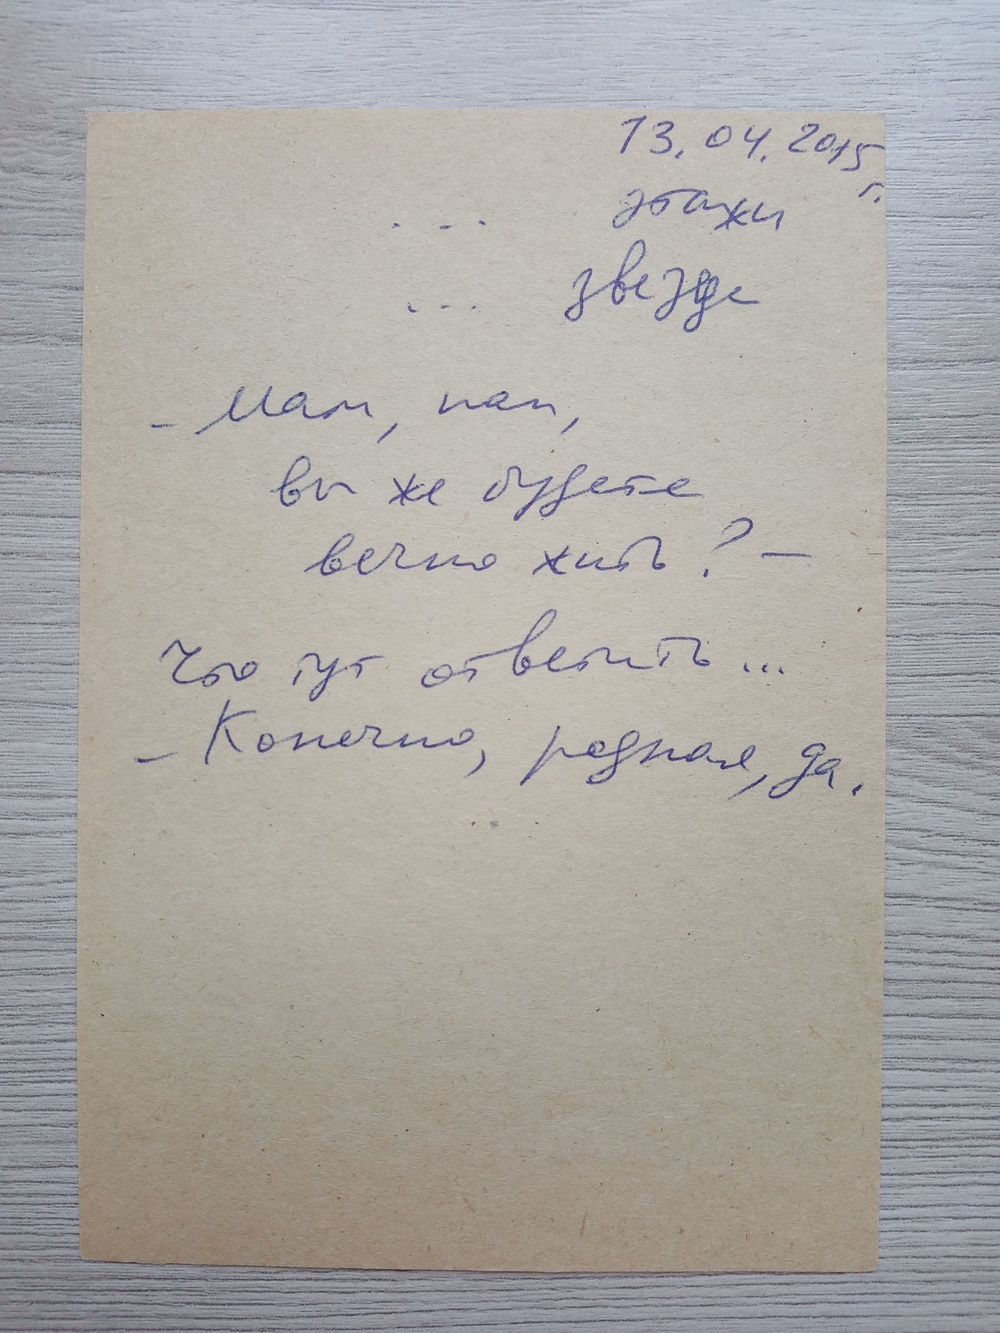 13.04.2015
г.
... этажи
... звезде
- Мам, пап,
вы же будете
вечно жить? -
Что тут ответить...
- Конечно, родная, да.